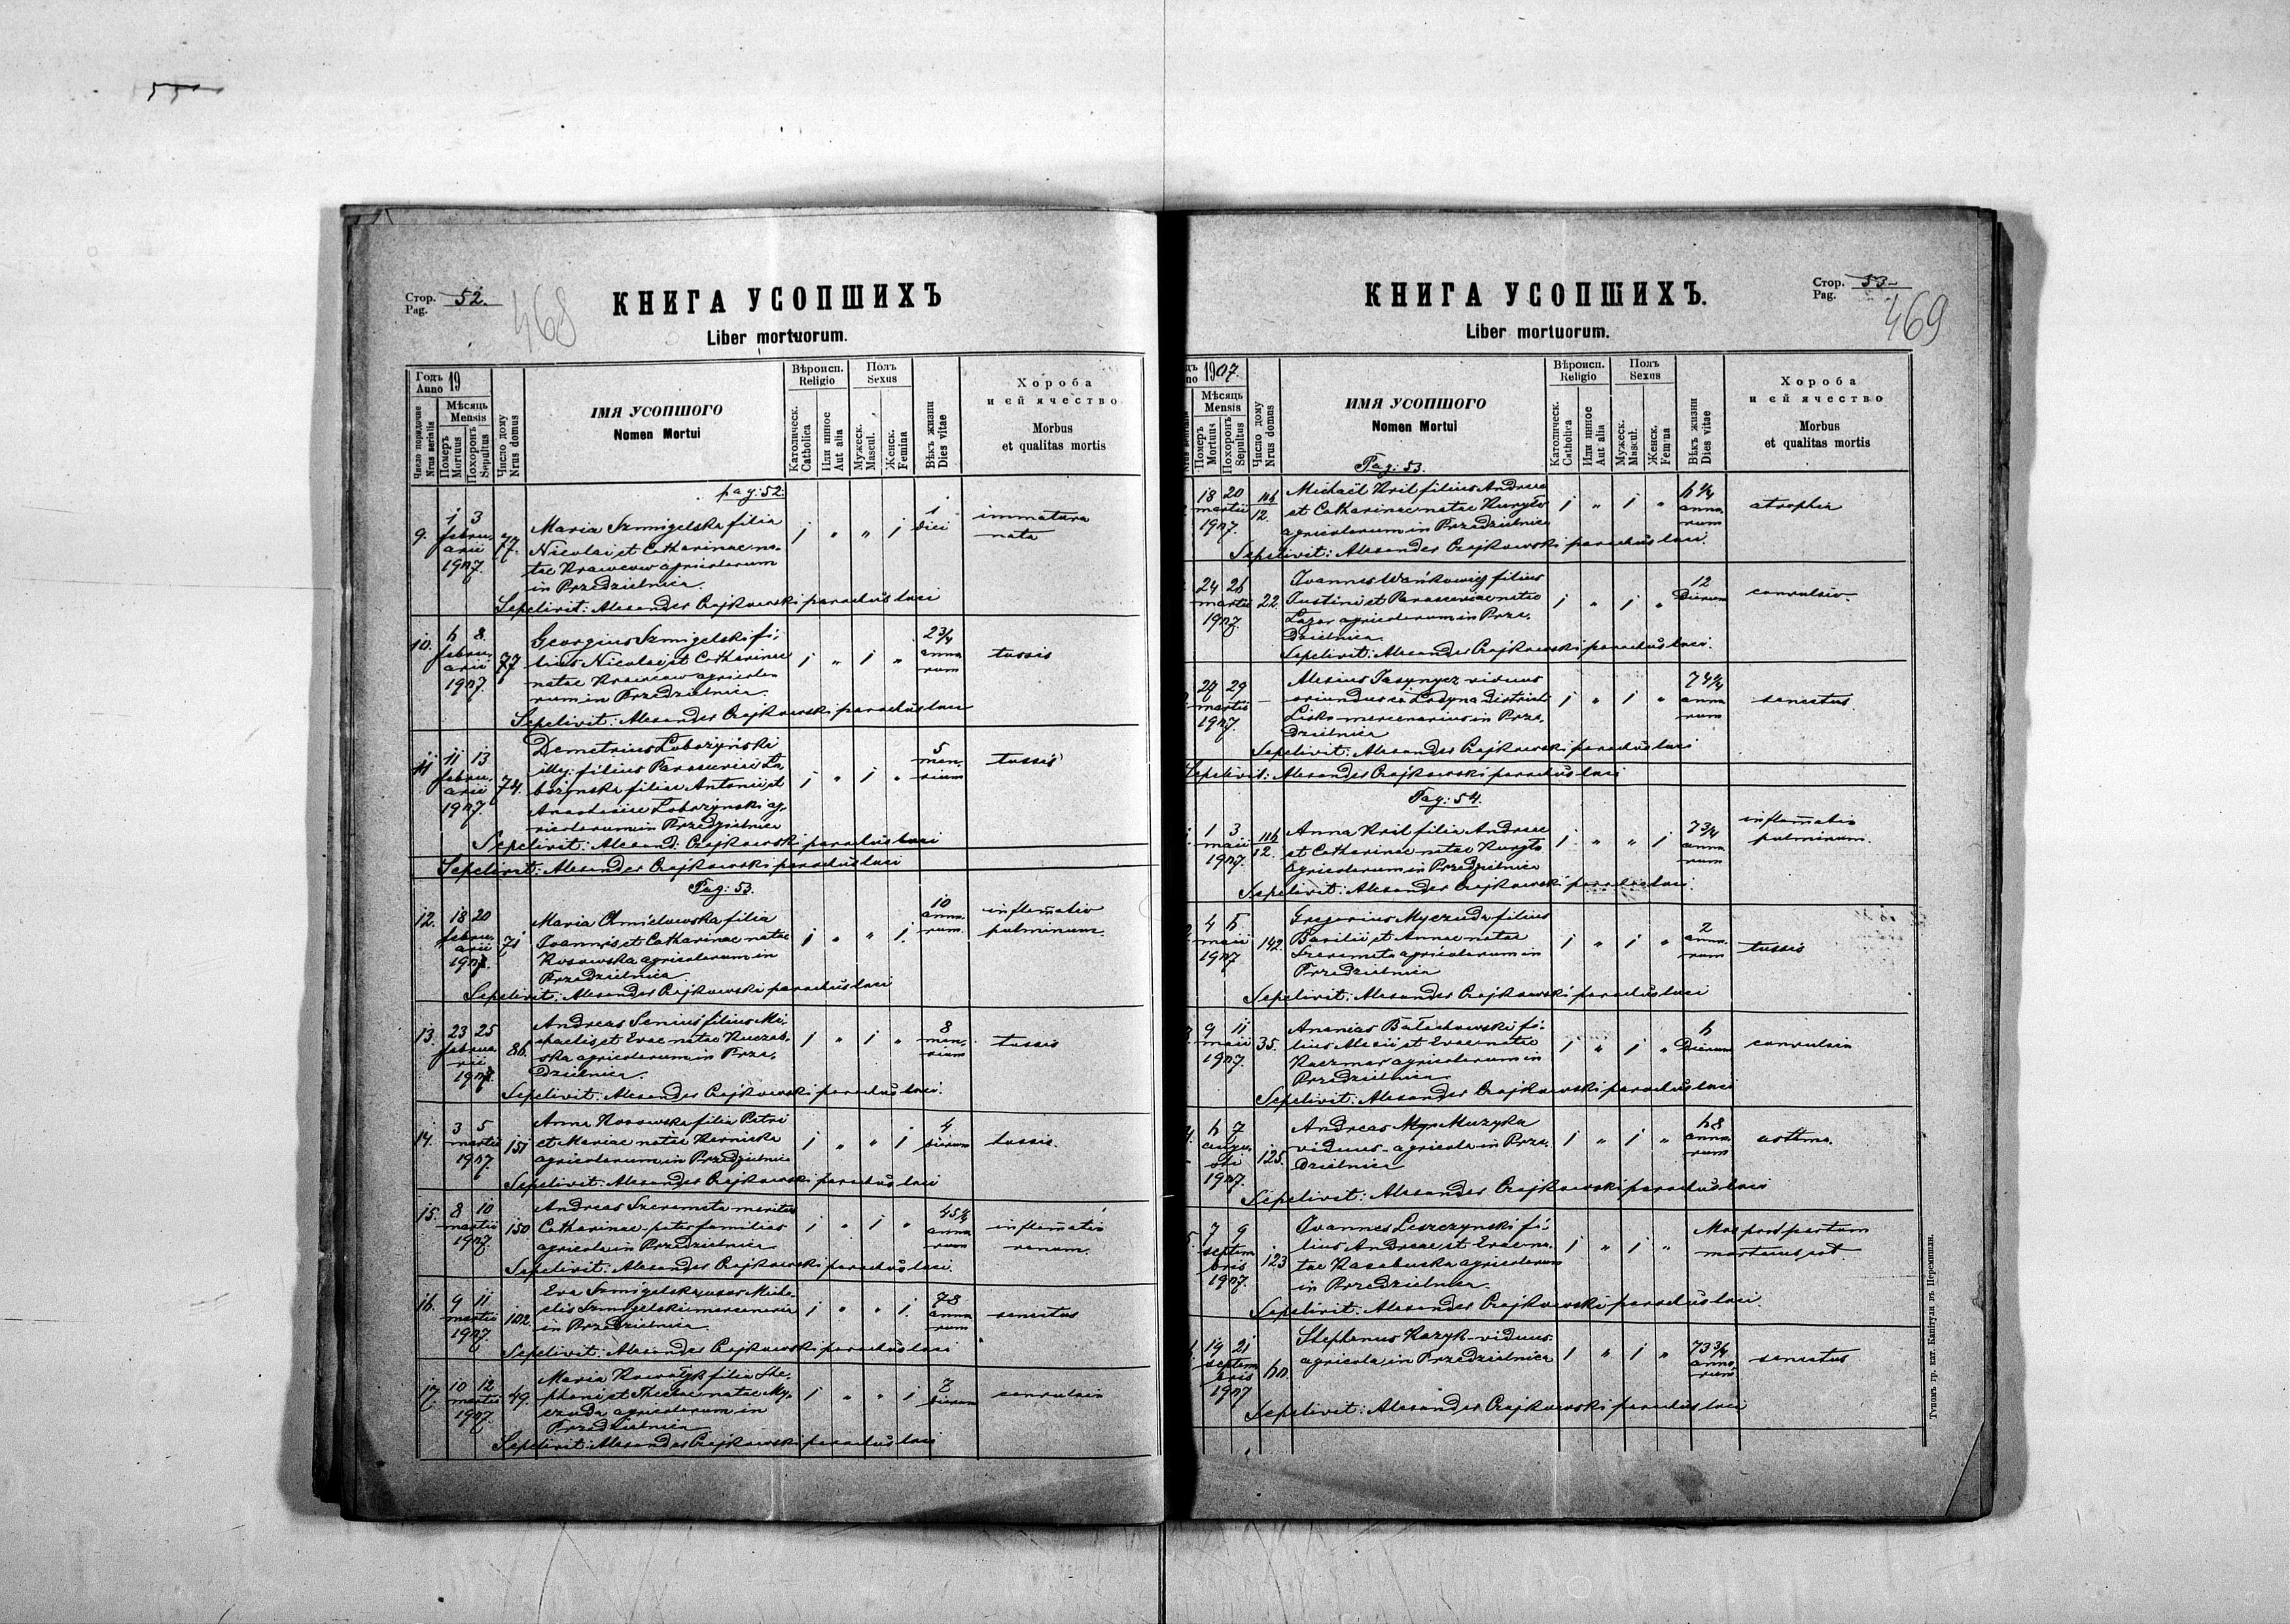 Стор. 52.
Pag.
468
КНИГА УСОПШИХЪ
Liber mortuorum.
Годъ 19
Anno
Мѣсяць
Mensis
Число порядочне
Nrus serialis
Померъ
Mortuus
Похоронъ
Sepultus
Число дому
Nrus domus
ІМЯ УСОПШОГО
Nomen Mortui
Вѣроисп.
Religio
Католическ.
Catholica
Или инное
Aut alia
Полъ
Sexus
Мужеск.
Mascul.
Женск.
Femina
Вѣкъ жизни
Dies vitae
Хороба
и еѣ ячество
Morbus
et qualitas mortis
pag: 52.
9. 1 3 februarii 1907. 77. 1 " " 1 1 diei immatura nata
Maria Szmigelska filia
Nicolai et Catharinae na-
tae Krawcow agricolarum
in Przedzielnica.
Sepelivit: Alexander Czajkowski parochus loci
10. 6 8. februarii 1907. 77 1 " 1 " 2 3/4 annorum tussis
Georgius Szmigelski fi-
lius Nicolai et Catharinae
natae Krawcow agricola-
rum in Przedzielnica.
Sepelivit: Alexander Czajkowski parochus loci
11 11 13 februarii 1907. 74. 1 " 1 " 5 mensium tussis
Demetrius Lobożyński
illeg: filius Parasceviae Lo-
bożynska filiae Antonii et
Anastasiae Lobożynski ag-
ricolarum in Przedzielnica
Sepelivit: Alexand: Czajkowski parochus loci
Sepelivit: Alexander Czajkowski parochus loci
Pag: 53.
12. 18 20 februarii 1907. 71 1 " " 1. 10 annorum. inflamatio pulminum.
Maria Chmielowska filia
Joannis et Catharinae natae
Kosowska agricolarum in
Przedzielnica
Sepelivit: Alexander Czajkowski parochus loci
13. 23 25 februarii 1907. 86. 1 " 1 " 8 mensium tussis
Andreas Senius filius Mi-
chaelis et Evae natae
agricolarum in Prze-
dzielnica.
Sepelivit: Alexander Czajkowski parochus loci.
14. 3 5 martii 1907. 151 1 " " 1. 4 dierum tussis.
Anna Kosowska filia Petri
et Mariae natae Karnicka
agricolarum in Przedzielnica
Sepelivit: Alexander Czajkowski parochus loci
15. 8 10 martii 1907. 150 1 " 1 " 45 annorum inflamatio renum.
Andreas Szeremeta maritus
Catharinae - paterfamilias
agricola in Przedzielnica
Sepelivit: Alexander Czajkowski parochus loci.
16. 9 11 martii 1907. 102. 1 " " 1. 78 annorum senectus
Eva Szmigelska uxor Micha-
elis Szmigelski mercenaria
in Przedzielnica.
Sepelivit: Alexander Czajkowski parochus loci
17. 10 12 martii 1907. 49. 1 " " 1 8 dierum convulsio
Maria Kowalyk filia Ste-
phani et Theclae natae My-
czuda agricolarum in
Przedzielnica
Sepelivit: Alexander Czajkowski parochus loci
Стор. 53
Pag.
469
КНИГА УСОПШИХЪ.
Liber mortuorum.
1907.
Мѣсяць
Mensis
Померъ
Mortuus
Похоронъ
Sepultus
Число дому
Nrus domus
ИМЯ УСОПШОГО
Nomen Mortui
Вѣроисп.
Religio
Католическ.
Catholica
Или инное
Aut alia
Полъ
Sexus
Мужеск.
Mascul.
Женск.
Femina
Вѣкъ жизни
Dies vitae
Хороба
и еѣ ячество
Morbus
et qualitas mortis
Pag: 53.
18 20 martii 1907. 116/12. 1 " 1 " 6 1/4 annorum atrophia
Michaël Kril filius Andreae
et Catharinae natae Kuryło
agricolarum in Przedzielnica
Sepelivit: Alexander Czajkowski parochus loci.
24 26 martii 1907. 22. 1 " 1 " 12 dierum convulsio.
Joannes Wańkowicz filius
Justini et Parasceviae natae
Lazar agricolarum in Prze-
dzielnica.
Sepelivit: Alexander Czajkowski parochus loci.
27 29 martii 1907. - 1 " 1 " 74 annorum senectus.
Alexius Jasynycz viduus
oriundus ex Lodyna districti
Lisko mercenarius in Prze-
dzielnica
Sepelivit: Alexander Czajkowski parochus loci
Sepelivit: Alexander Czajkowski parochus loci
Pag: 54.
1 3 maii 1907. 116/12. 1 " " 1 7 3/4 annorum inflamatio pulminum.
Anna Kril filia Andreae
et Catharinae natae Kuryło
agricolarum in Przedzielnica
Sepelivit: Alexander Czajkowski parochus loci.
4 6 maii 1907 142. 1 " 1 " 2 annorum tussis
Gregorius Myczuda filius
Basilii et Annae natae
Szeremeta agricolarum in
Przedzielnica
Sepelivit: Alexander Czajkowski parochus loci
9 11 maii 1907. 35. 1 " 1 " 6 dierum convulsio
Ananias Bałachowski fi-
lius Alexii et Evae natae
Kaczmar agricolarum in
Przedzielnica
Sepelivit: Alexander Czajkowski parochus loci
6 7 augusti 1907. 125. 1 " 1 " 68 annorum asthma.
Andreas Muzyka
viduus - agricola in Prze-
dzielnica
Sepelivit: Alexander Czajkowski parochus loci
7 9 septembris 1907. 123 1 " 1 " Mox post partum mortuus est.
Joannes Leszczynski fi-
lius Andreae et Evae na-
tae agricolarum
in Przedzielnica.
Sepelivit: Alexander Czajkowski parochus loci.
19 21 septembris 1907 60. 1 " 1 " 73 3/4 annorum senectus
Stephanus Kazyk - viduus
agricola in Przedzielnica
Sepelivit: Alexander Czajkowski parochus loci
Типомъ гр. кат. Капітули въ Перемишли.